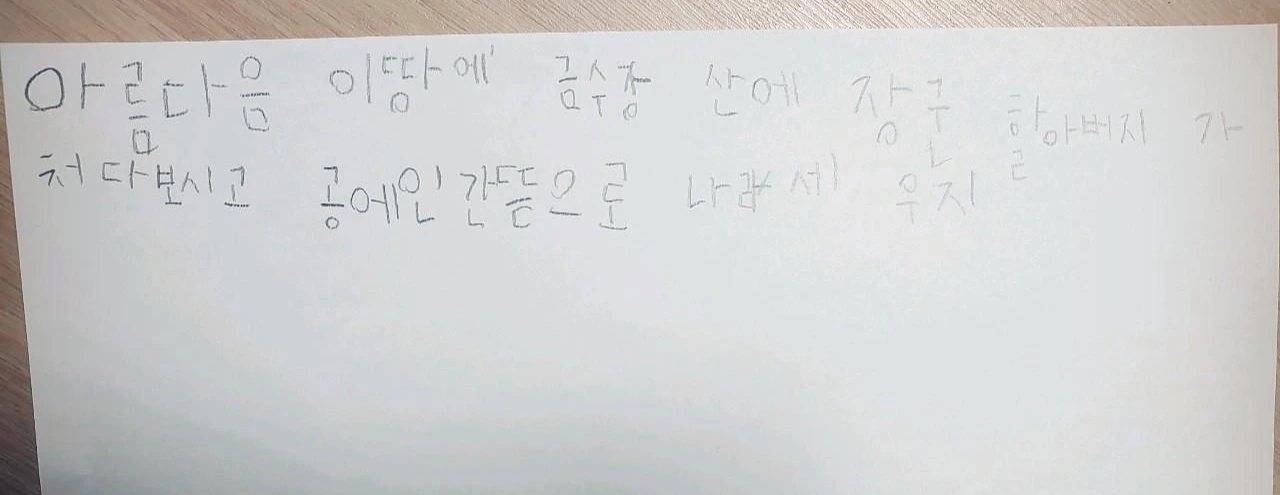 아름다음 이땅에 금수장 산에 장군 할아버지 가
처다보시고 공에인간뜻으로 나라세우지